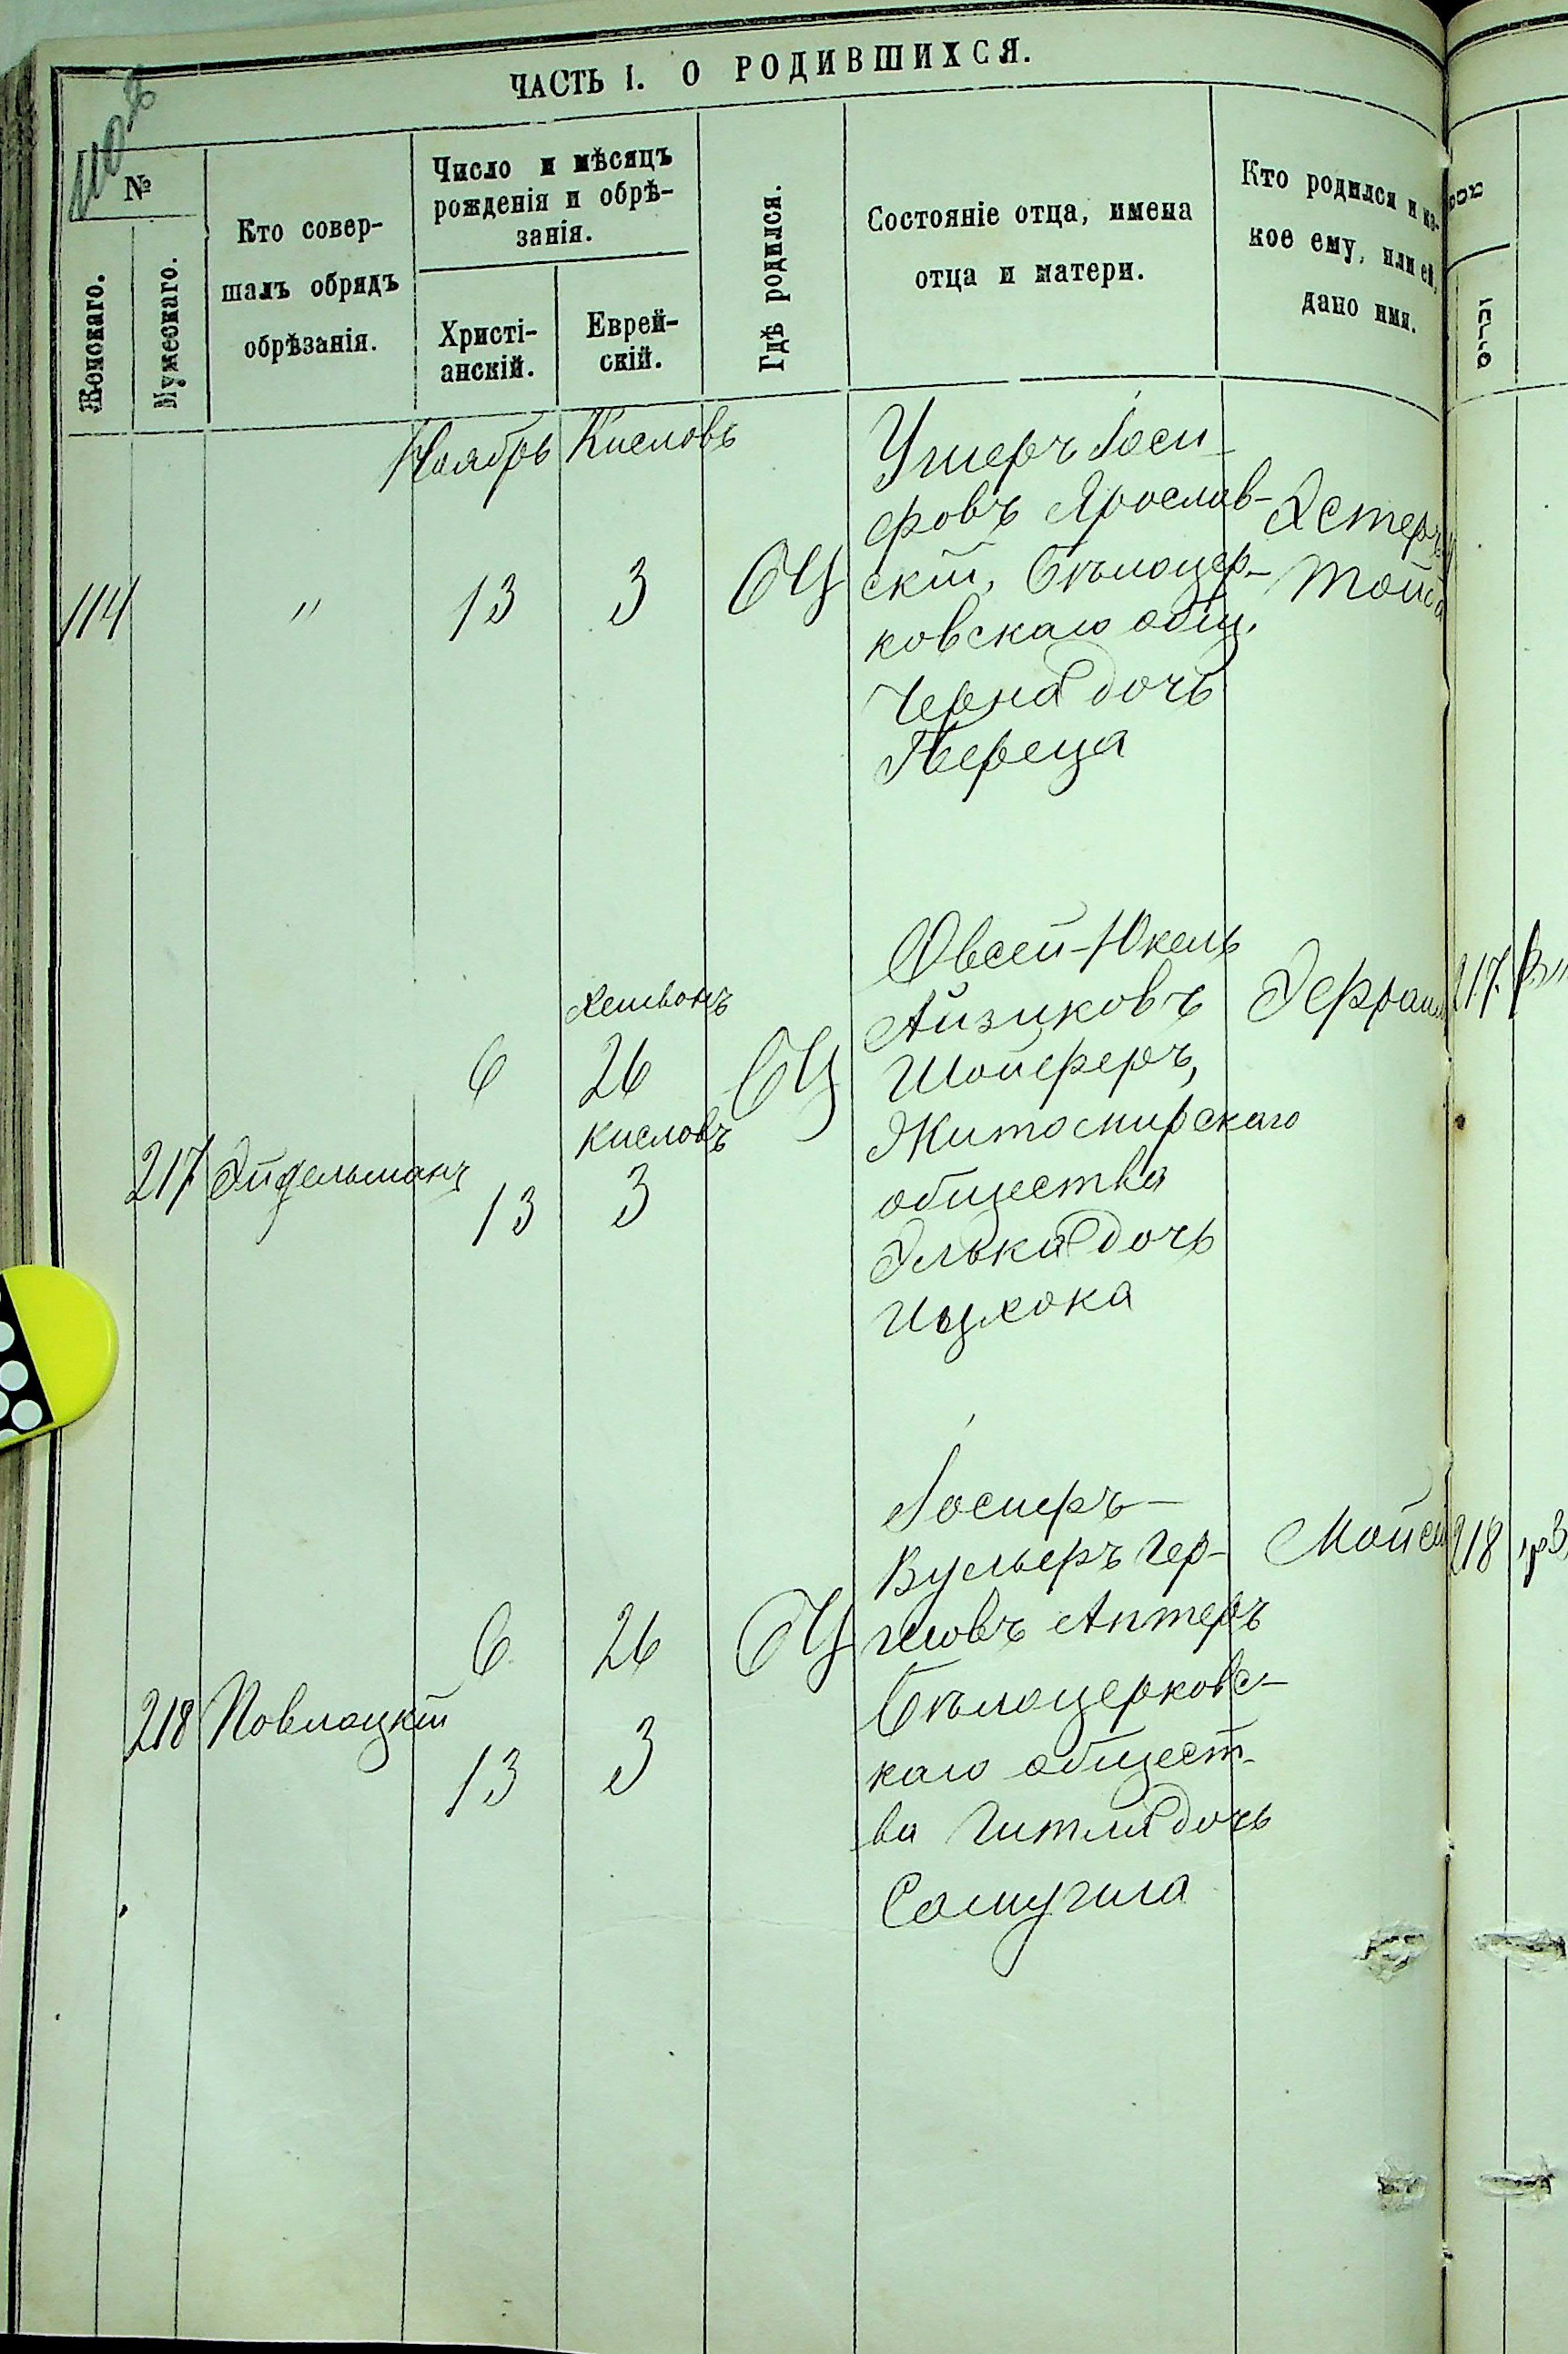 ЧАСТЬ I. О РОДИВШИХСЯ.
№
Женскаго.
Мужескаго.
Кто совер-
шалъ обрядъ
обрѣзанія.
Число и мѣсяцъ
рожденія и обрѣ-
занія.
Христі-
анскій.
Еврей-
скій.
Гдѣ родился.
Состояніе отца, имена
отца и матери.
Кто родился и ка-
кое ему, или ей,
дано имя.
Ноябрь Кисловъ
114 " 13 3 БЦ
Ушеръ Іоси-
фовъ Ярослав-
скій, Бѣлоцер-
ковскаго общ.
Черна дочь
Переца
Эстеръ
Хешвонъ
6 26 БЦ
Кисловъ
217 Эйдельманъ 13 3
Овсей-Юкель
Айзиковъ
Шойферъ,
Житомирскаго
общества
Элька дочь
Ицхока
217
6 26 БЦ
218 Поволоцкій 13 3
Іосифъ-
Вульфъ Гер-
шовъ Аптеръ
Бѣлоцерковс-
каго общест-
ва Гитля дочь
Самуила
218